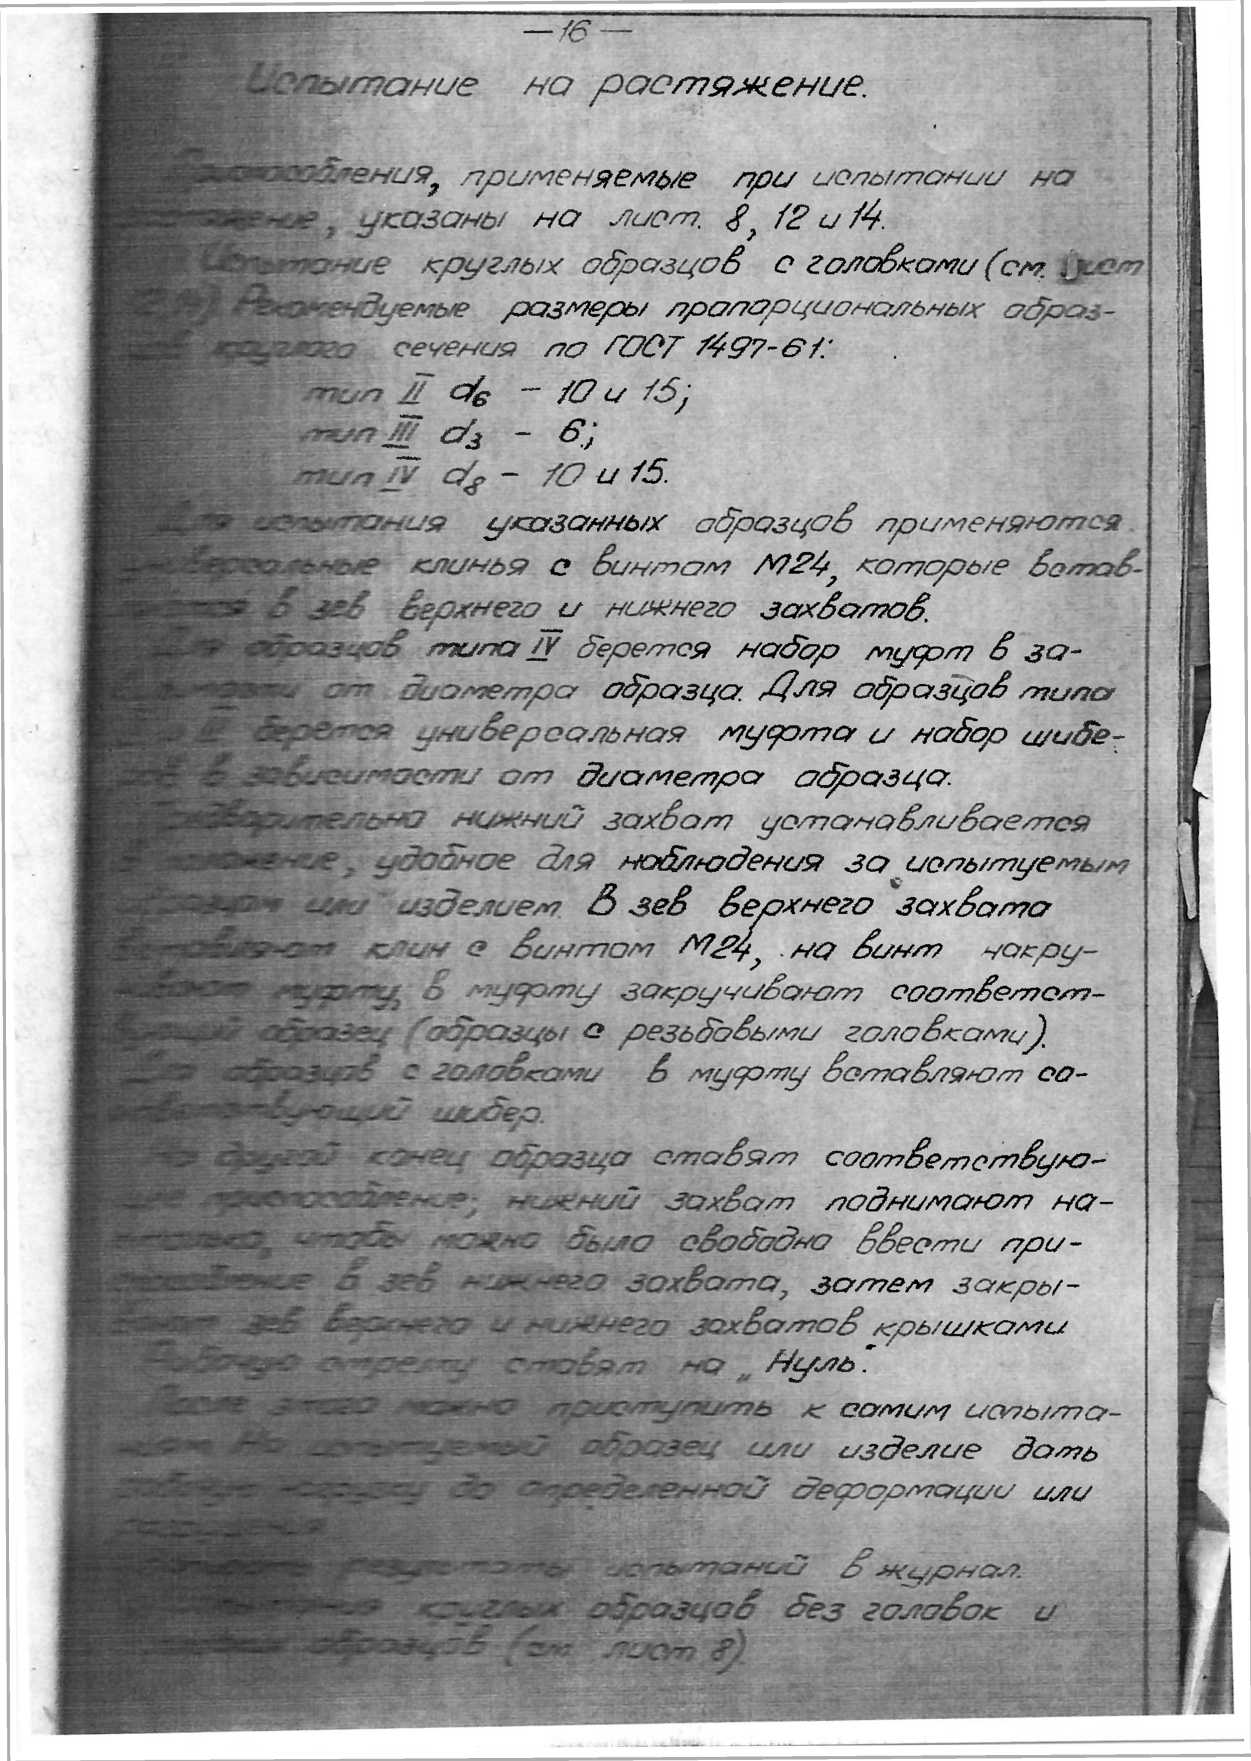 — 16 —
Испытание на растяжение.
Приспособления, применяемые при испытании на
растяжение, указаны на лист. 8, 12 и 14.
Испытание круглых образцов с головками (см. лист
Рекомендуемые размеры пропорциональных образ-
круглого сечения по ГОСТ 1497-61:
тип II d6 – 10 и 15;
тип III d3 – 6;
тип IV d8 – 10 и 15.
Для испытания указанных образцов применяются
клинья с винтом М24, которые встав-
в зев верхнего и нижнего захватов.
Для образцов типа IV берется набор муфт в за-
от диаметра образца. Для образцов типа
III берется универсальная муфта и набор шибе-
в зависимости от диаметра образца.
Предварительно нижний захват устанавливается
положение, удобное для наблюдения за испытуемым
образцом или изделием. В зев верхнего захвата
клин с винтом М24, на винт накру-
муфту, в муфту закручивают соответст-
образец (образцы с резьбовыми головками).
Для образцов с головками в муфту вставляют со-
шибер.
На другой конец образца ставят соответствую-
приспособление; нижний захват поднимают на-
чтобы можно было свободно ввести при-
в зев нижнего захвата, затем закры-
зев верхнего и нижнего захватов крышками
Рабочую стрелку ставят на „Нуль".
После этого можно приступить к самим испыта-
На испытуемый образец или изделие дать
нагрузку до определенной деформации или
результаты испытаний в журнал.
круглых образцов без головок и
образцов (см. лист 8)